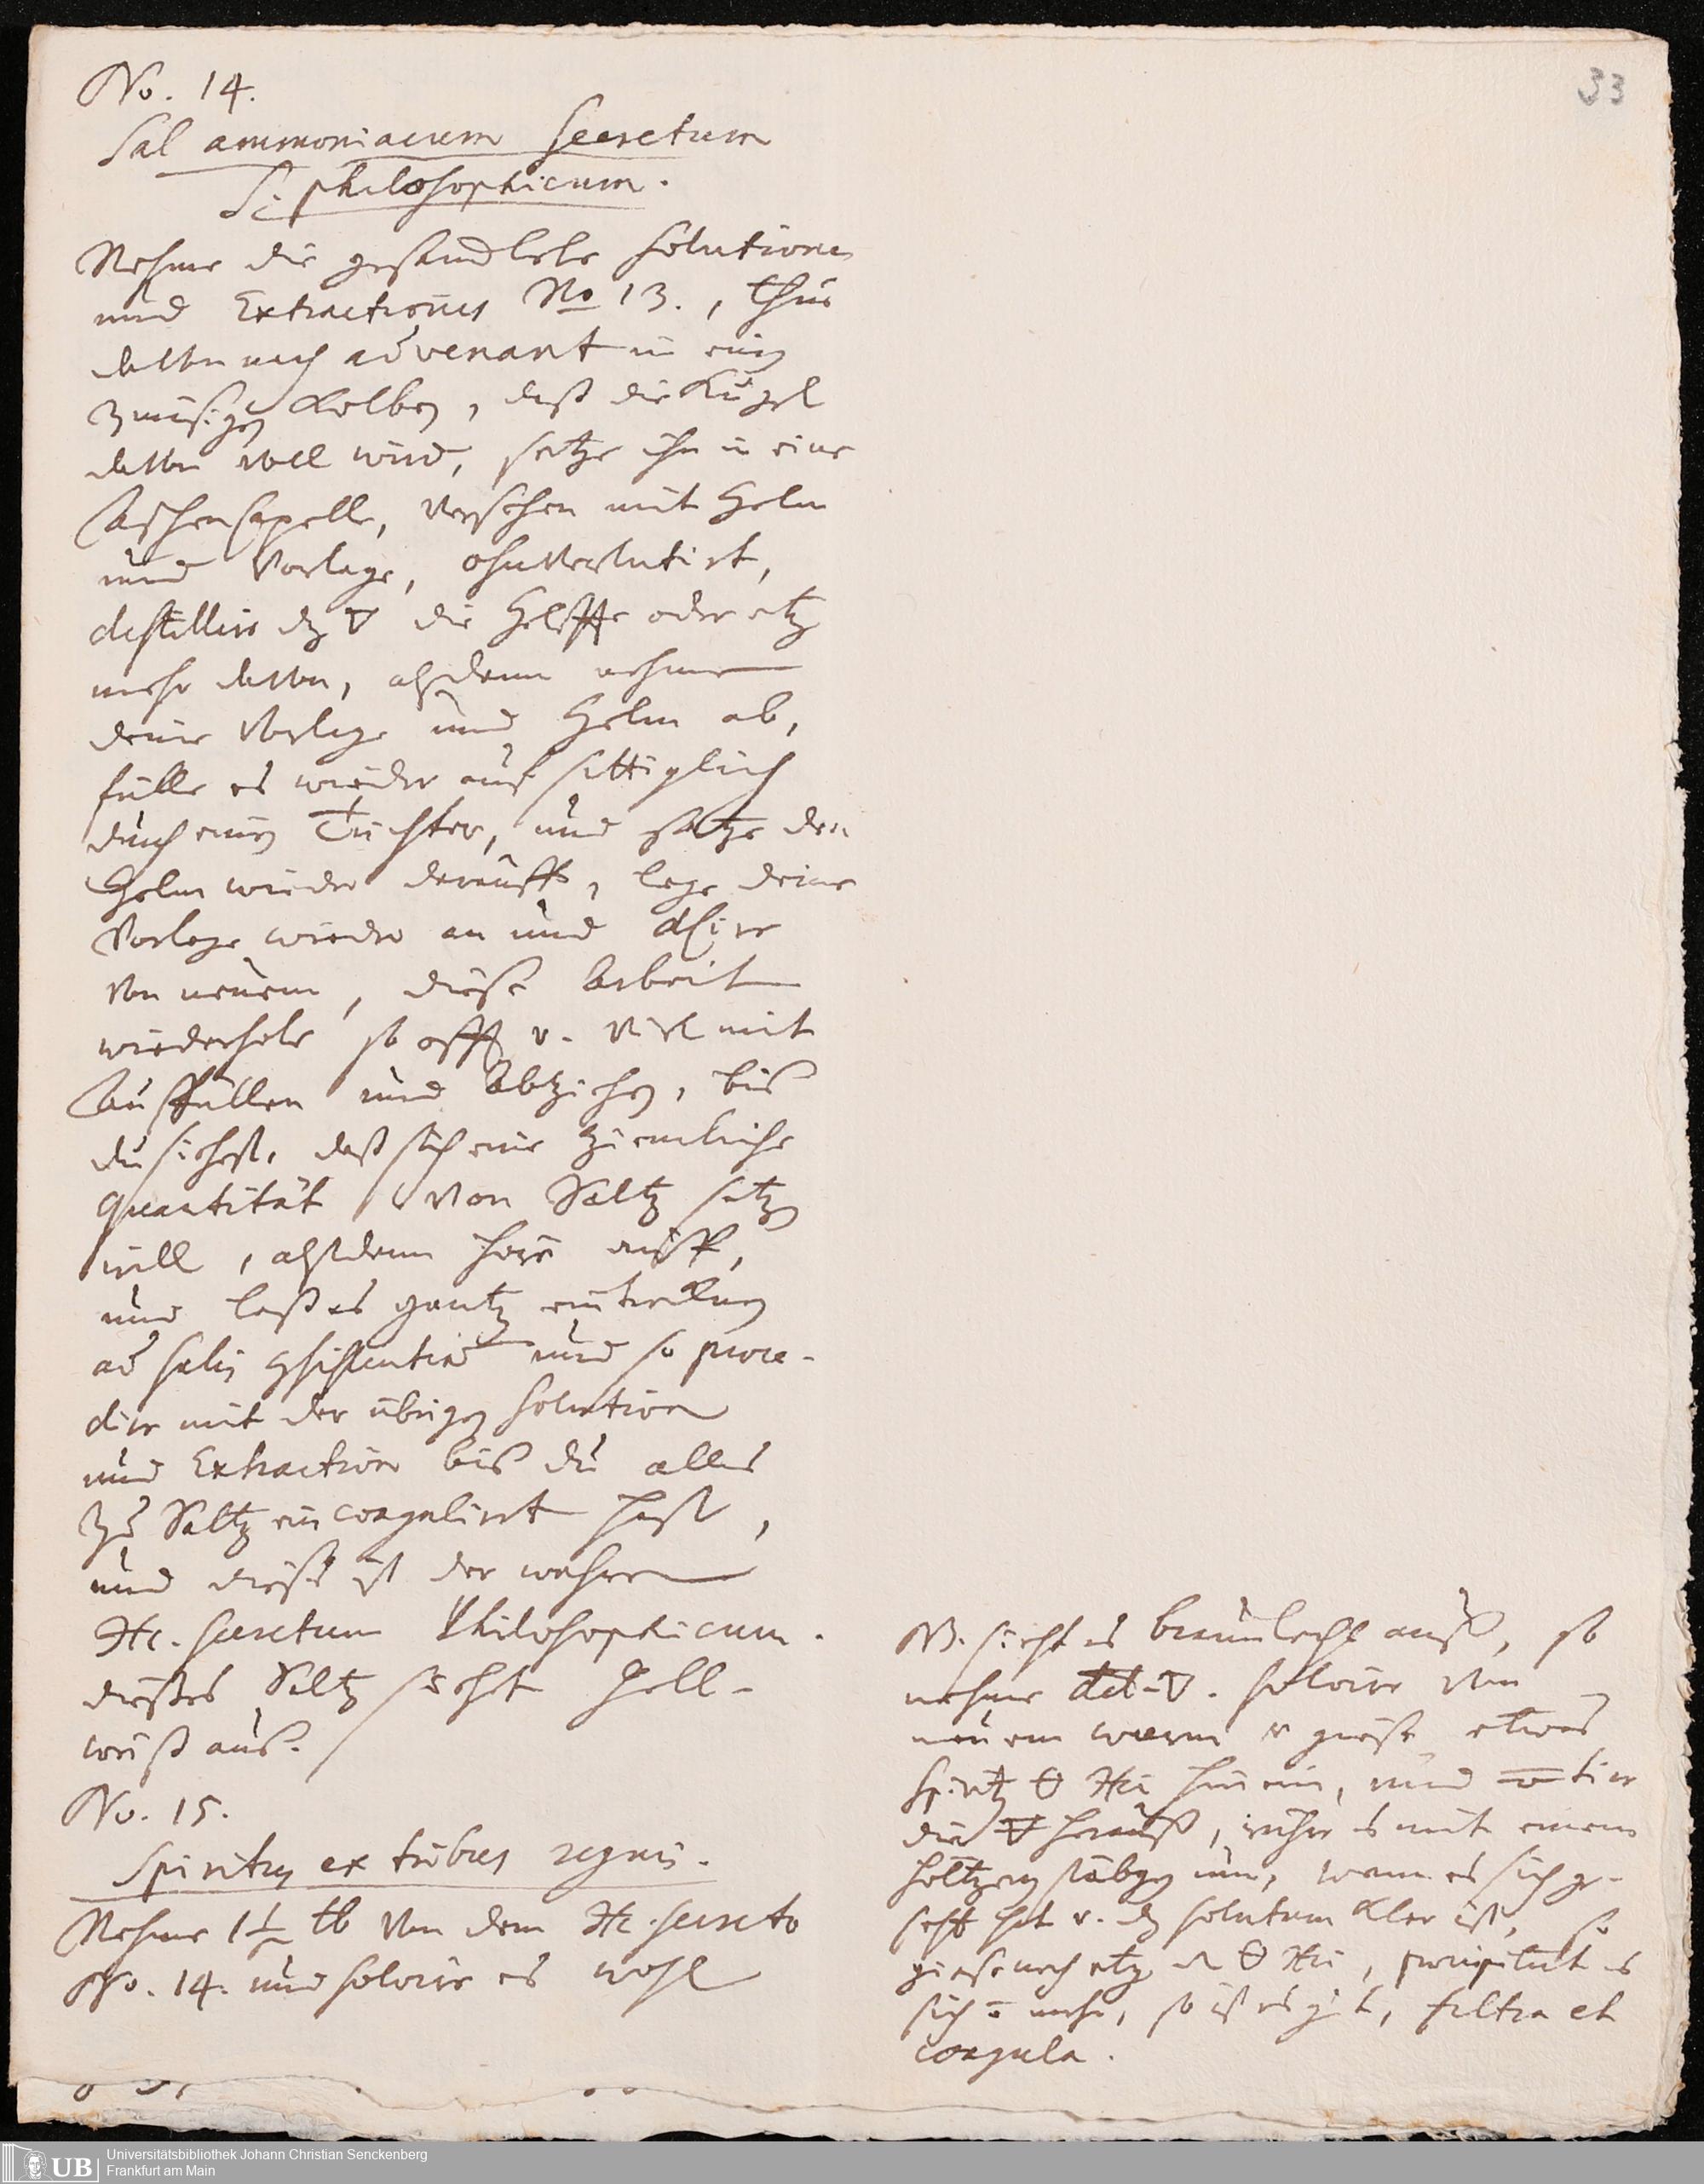 33
No. 14.
Sal ammoniacum Secretum
S. philosophicum.
Nehme die gehandlete Solutiones
und Extractiones No 13., thue
davon nach advenant in einen
mäsigen Kolben, daß die Kugel
davon voll wird, setze ihn in eine
Aschencapelle, versehen mit Helm
und Vorlage, ohnverlutirt,
destillire dz 🜄 die Helffte oder etz
mehr davon, alsdann nehme
deine Vorlage und Helm ab,
fülle es wieder auf sittiglich
durch einen Trichter, und setze den
Helm wieder darauff, lege deine
Vorlage wieder an und dstire
von neuem, diese Arbeit
wiederhole so offt v. viel mit
Auffüllen und Abziehen, bis
du siehest, daß sich eine ziemliche
quantität von Saltz setzen
will, alsdann höre auff,
und laß es gantz eintrocknen
ad salis consistentiam und so proce-
dire mit der übrigen Solution
und Extraction biß du alles
zu Saltz ein coagulirt hast,
und dieses ist der wahre
🜹c. secretum Philosophicum.
dießes Saltz siehet hell-
weiß aus.
No. 15.
Spiritus ex tribus regnis.
Nehme 1½ ℔ von dem 🜹c. secreto
No. 14. und solvire es wohl
NB. sieht es bräunlecht auß, so
nehme dest. 🜄. solvire von
neuem warm v gieße etwas
Spiritus 🜔 🜹ci hinein, und
die 🜃 herauß, rühre es mit einem
höltzern stäbgen um, wenn es sich ge-
setzt hat v. dz solutum klar ist, so
gieße noch etz 🜔 🜹ci, praecipitirt es
sich ō mehr, so ist es gut, filtra et
coagula.
Universitätsbibliothek Johann Christian Senckenberg
Frankfurt am Main
UB